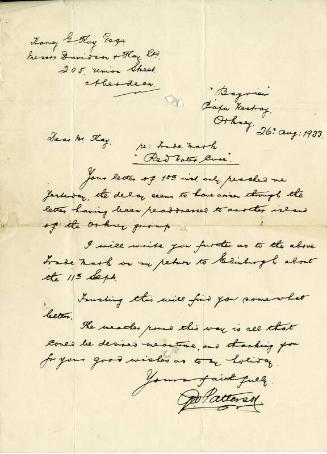 Harvey G Kay Esqre
Messrs Davidson & Kay Ltd.
205, Union Street
Aberdeen
"Bayview"
Papa Westray
Orkney
26th Aug: 1933
Dear Mr Kay,
re: Trade Mark
"Red Gates Cure".
Your letter of 18th inst only reached me
yesterday, the delay seems to have arisen through the
letter having been readdressed to another island
of the Orkney group.
I will write you further as to the above
Trade Mark on my return to Edinburgh about
the 11th Sept.
Trusting this will find you somewhat
better.
The weather round this way is all that
could be desired meantime, and thanking you
for your good wishes as to my holiday.
Yours faithfully
Geo Patterson